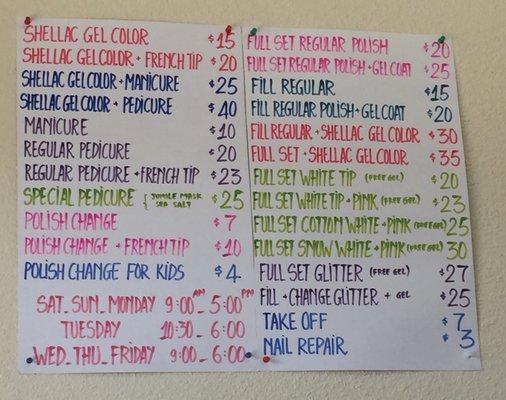 SHELLAC GEL COLOR $15
SHELLAC GELCOLOR + FRENCH TIP $20
SHELLAC GELCOLOR + MANICURE $25
SHELLAC GELCOLOR + PEDICURE $40
MANICURE $10
REGULAR PEDICURE $20
REGULAR PEDICURE + FRENCH TIP $23
SPECIAL PEDICURE { JUMILE MASK SEA SALT $25
POLISH CHANGE $7
POLISH CHANGE + FRENCH TIP $10
POLISH CHANGE FOR KIDS $4
SAT_SUN_MONDAY 9:00AM - 5:00PM
TUESDAY 10:30 - 6:00
WED_THU_FRIDAY 9:00 - 6:00
FULL SET REGULAR POLISH $20
FULL SET REGULAR POLISH + GEL COAT $25
FILL REGULAR $15
FILL REGULAR POLISH + GEL COAT $20
FILL REGULAR + SHELLAC GEL COLOR $30
FULL SET + SHELLAC GEL COLOR $35
FULL SET WHITE TIP (FREE GEL) $20
FULL SET WHITE TIP + PINK (FREE GEL) $23
FULL SET COTTON WHITE + PINK (FREE GEL) $25
FULL SET SNOW WHITE + PINK (FREE GEL) $30
FULL SET GLITTER (FREE GEL) $27
FILL + CHANGE GLITTER + GEL $25
TAKE OFF $7
NAIL REPAIR $3